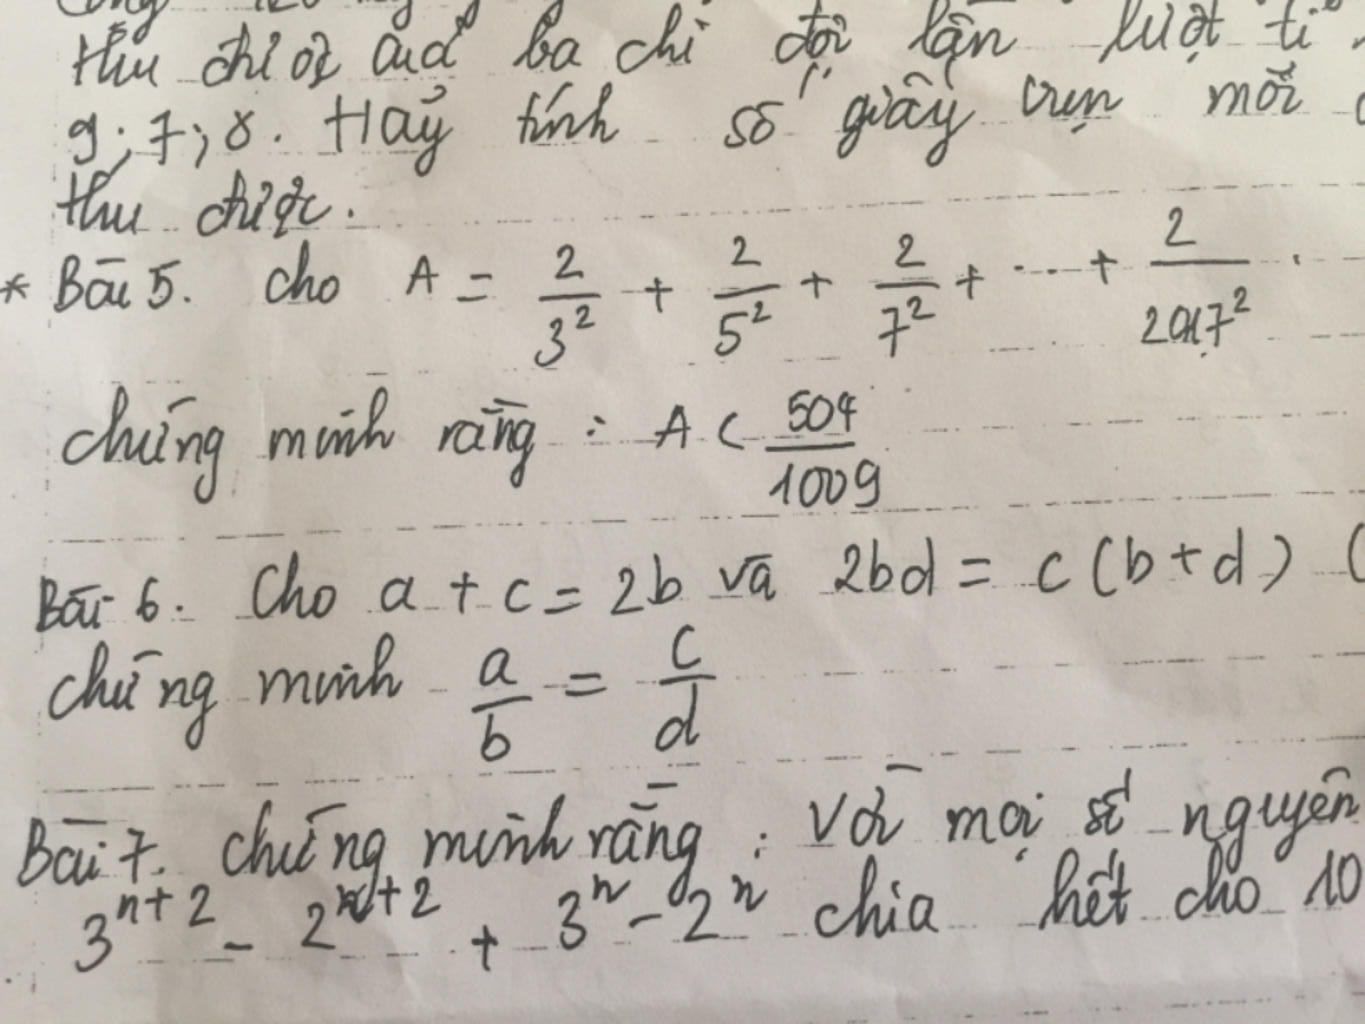 thu được của ba chi đội lần lượt tỉ
9; 7; 8. Hãy tính số giấy vụn mỗi
thu được.
* Bài 5. Cho A = 2/3² + 2/5² + 2/7² + ... + 2/2017².
Chứng minh rằng : A < 504/1009
Bài 6. Cho a + c = 2b và 2bd = c(b+d) (
Chứng minh a/b = c/d
Bài 7. Chứng minh rằng : Với mọi số nguyên
3ⁿ⁺² - 2ⁿ⁺² + 3ⁿ - 2ⁿ chia hết cho 10